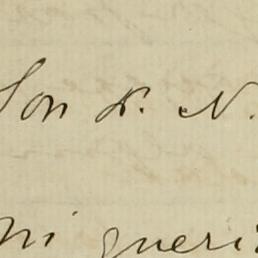 Son D. N.
Mi queri